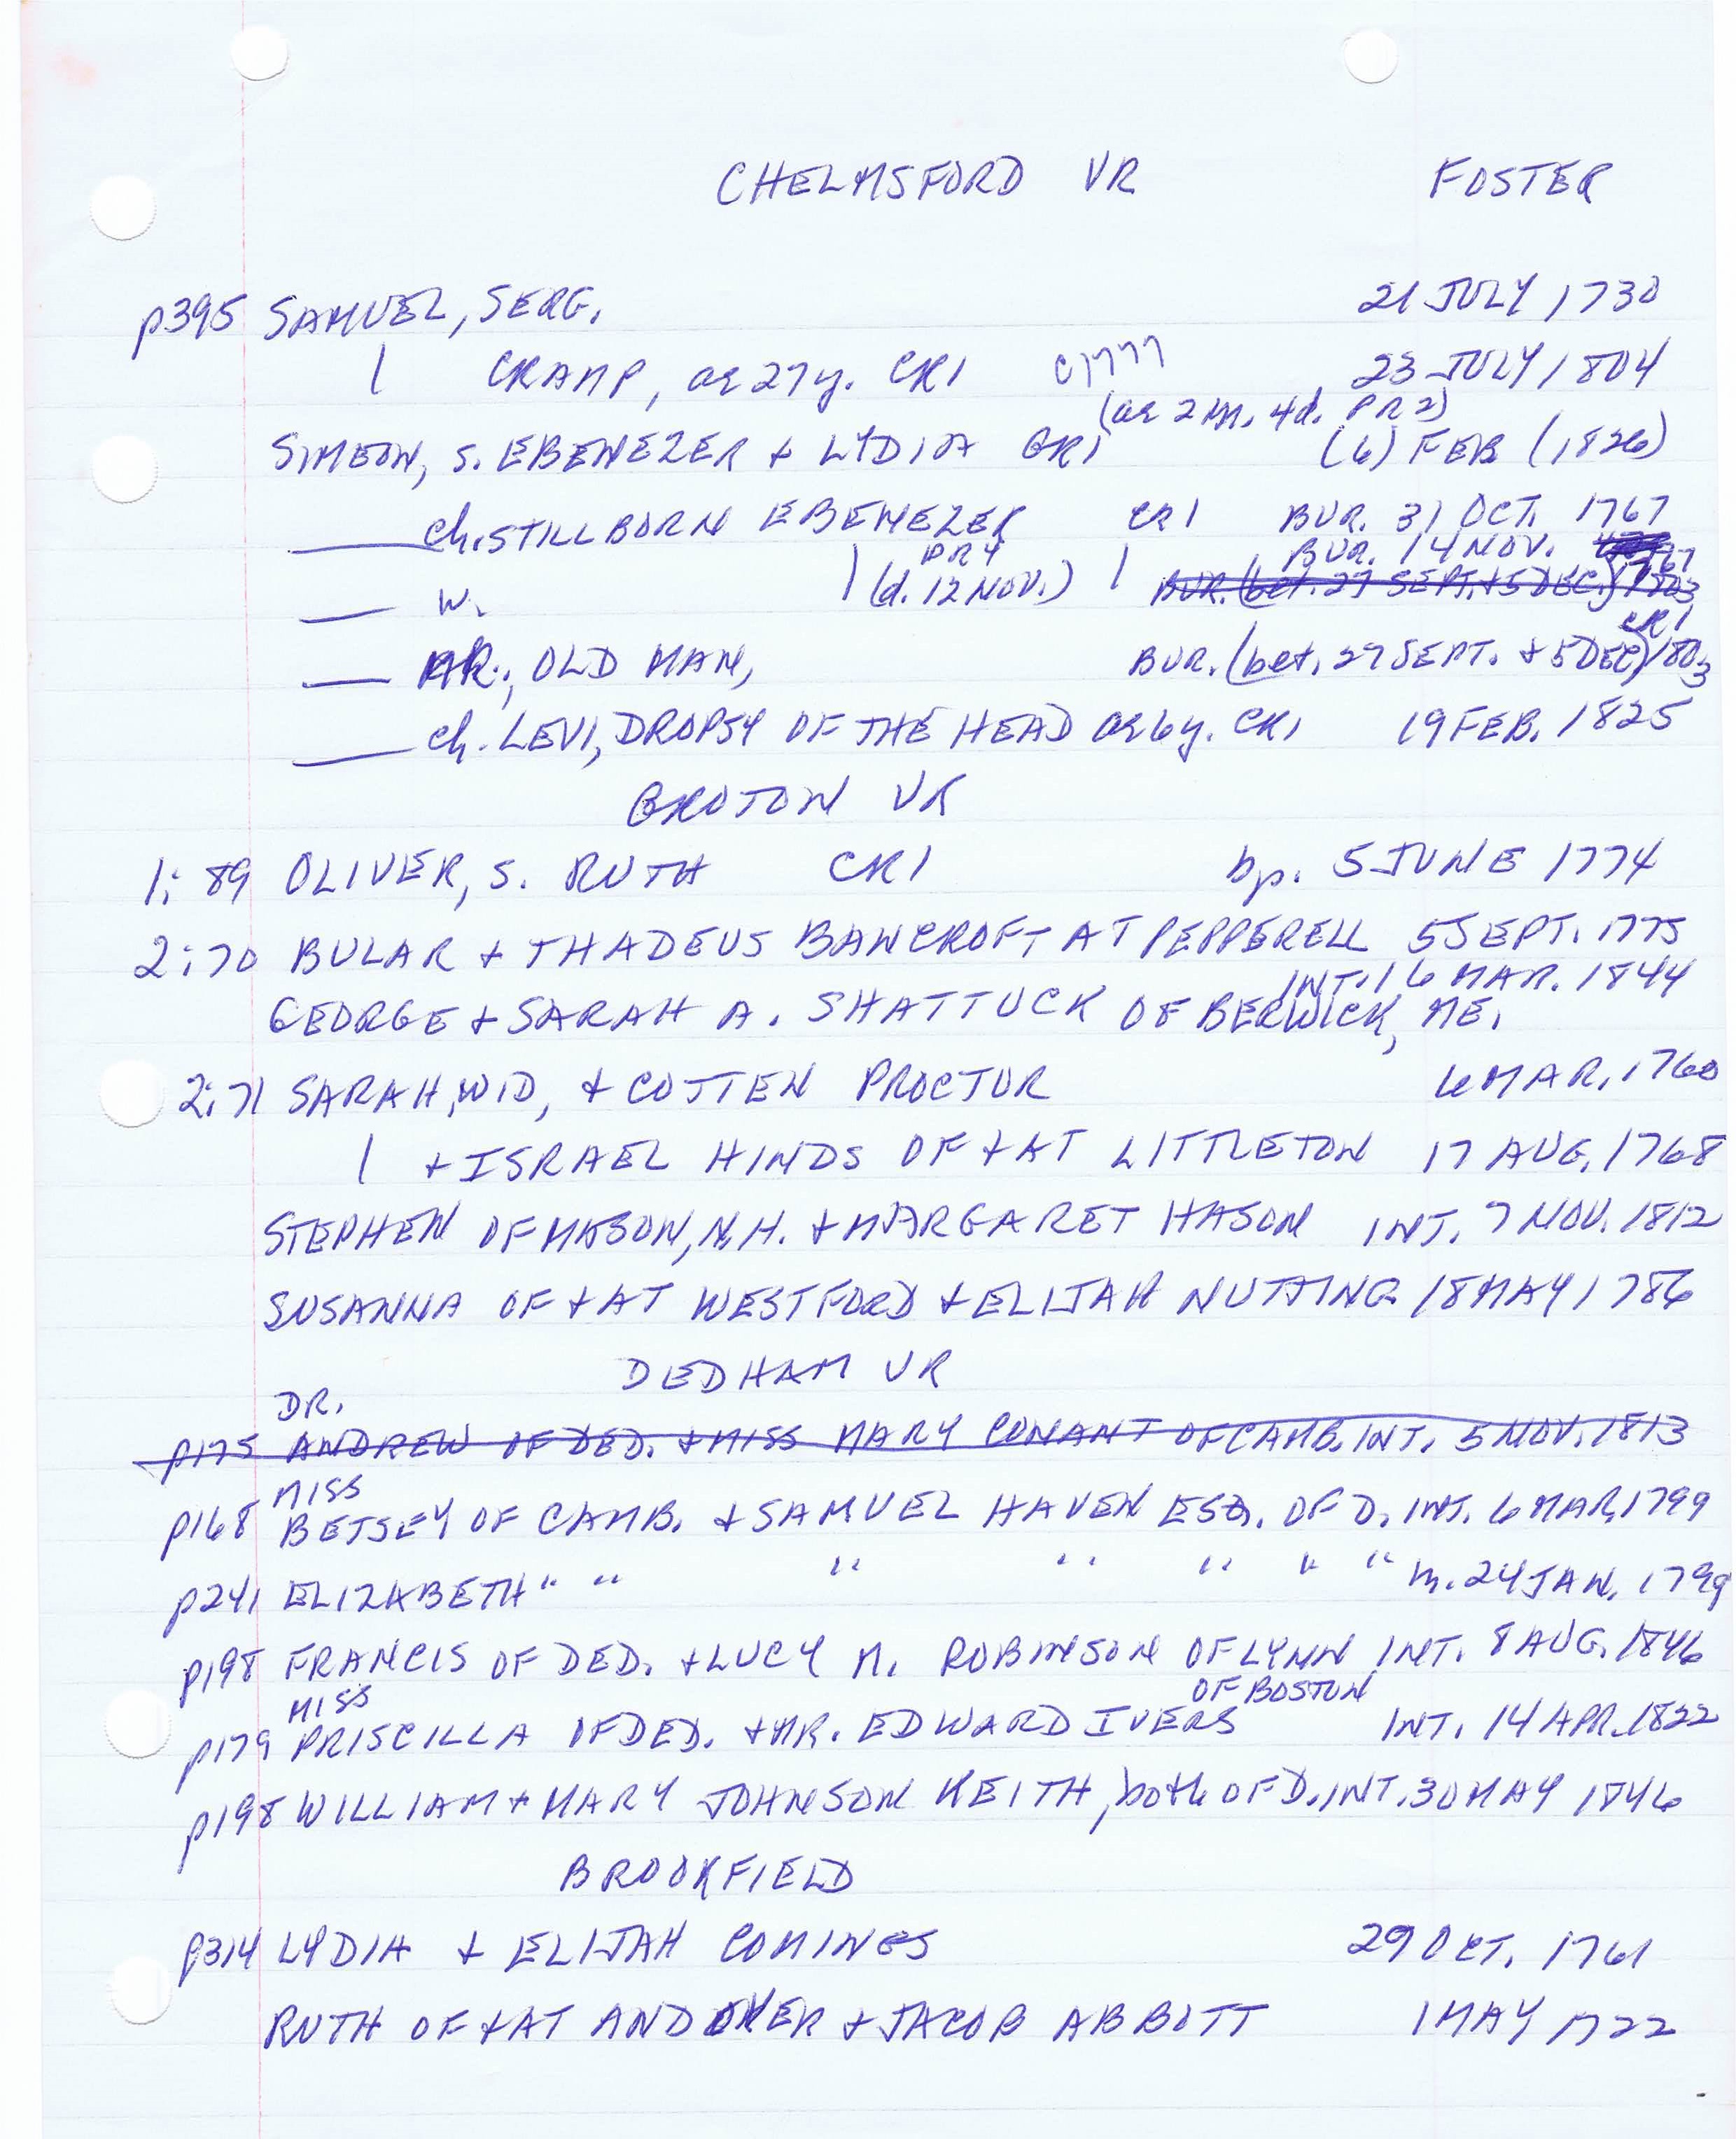 CHELMSFORD VR FOSTER
p395 SAMUEL, SERG. 21 JULY 1730
| CRAMP, ae 27y. CR1 c1777 23 JULY 1804
(ae 2 m. 4d. PR2)
SIMEON, s. EBENEZER + LYDIA CR1 (6) FEB (1826)
___ ch. STILLBORN EBENEZER CR1 BUR. 31 OCT. 1767
PR4 BUR. 14 NOV. 1767
___ W. | (d. 12 NOV.) | BUR. (bet. 27 SEPT. + 5 DEC.) 1803
CR1
___ MR., OLD MAN, BUR. (bet. 27 SEPT. + 5 DEC) 1803
___ ch. LEVI, DROPSY OF THE HEAD ae 6y. CR1 19 FEB. 1825
GROTON VR
1:89 OLIVER, s. RUTH CR1 bp. 5 JUNE 1774
2:70 BULAR + THADEUS BANCROFT AT PEPPERELL 5 SEPT. 1775
INT. 16 MAR. 1844
GEORGE + SARAH A. SHATTUCK OF BERWICK, ME.
2:71 SARAH, WID, + COTTEN PROCTOR 6 MAR. 1760
| + ISRAEL HINDS OF + AT LITTLETON 17 AUG. 1768
STEPHEN OF MASON, N.H. + MARGARET HASON INT. 7 NOV. 1812
SUSANNA OF + AT WESTFORD + ELIJAH NUTTING 18 MAY 1786
DEDHAM VR
DR.
p175 ANDREW OF DED. + MISS MARY CONANT OF CAMB. INT. 5 NOV. 1813
MISS
p168 BETSEY OF CAMB. + SAMUEL HAVEN ESQ. OF D. INT. 6 MAR. 1799
p241 ELIZABETH " " " " " " " m. 24 JAN. 1799
p198 FRANCIS OF DED. + LUCY M. ROBINSON OF LYNN INT. 8 AUG. 1846
MISS OF BOSTON
p179 PRISCILLA OF DED. + MR. EDWARD IVERS INT. 14 APR. 1822
p198 WILLIAM + MARY JOHNSON KEITH, both OF D. INT. 30 MAY 1846
BROOKFIELD
p314 LYDIA + ELIJAH COMINGS 29 OCT. 1761
RUTH OF + AT ANDOVER + JACOB ABBOTT 1 MAY 1722